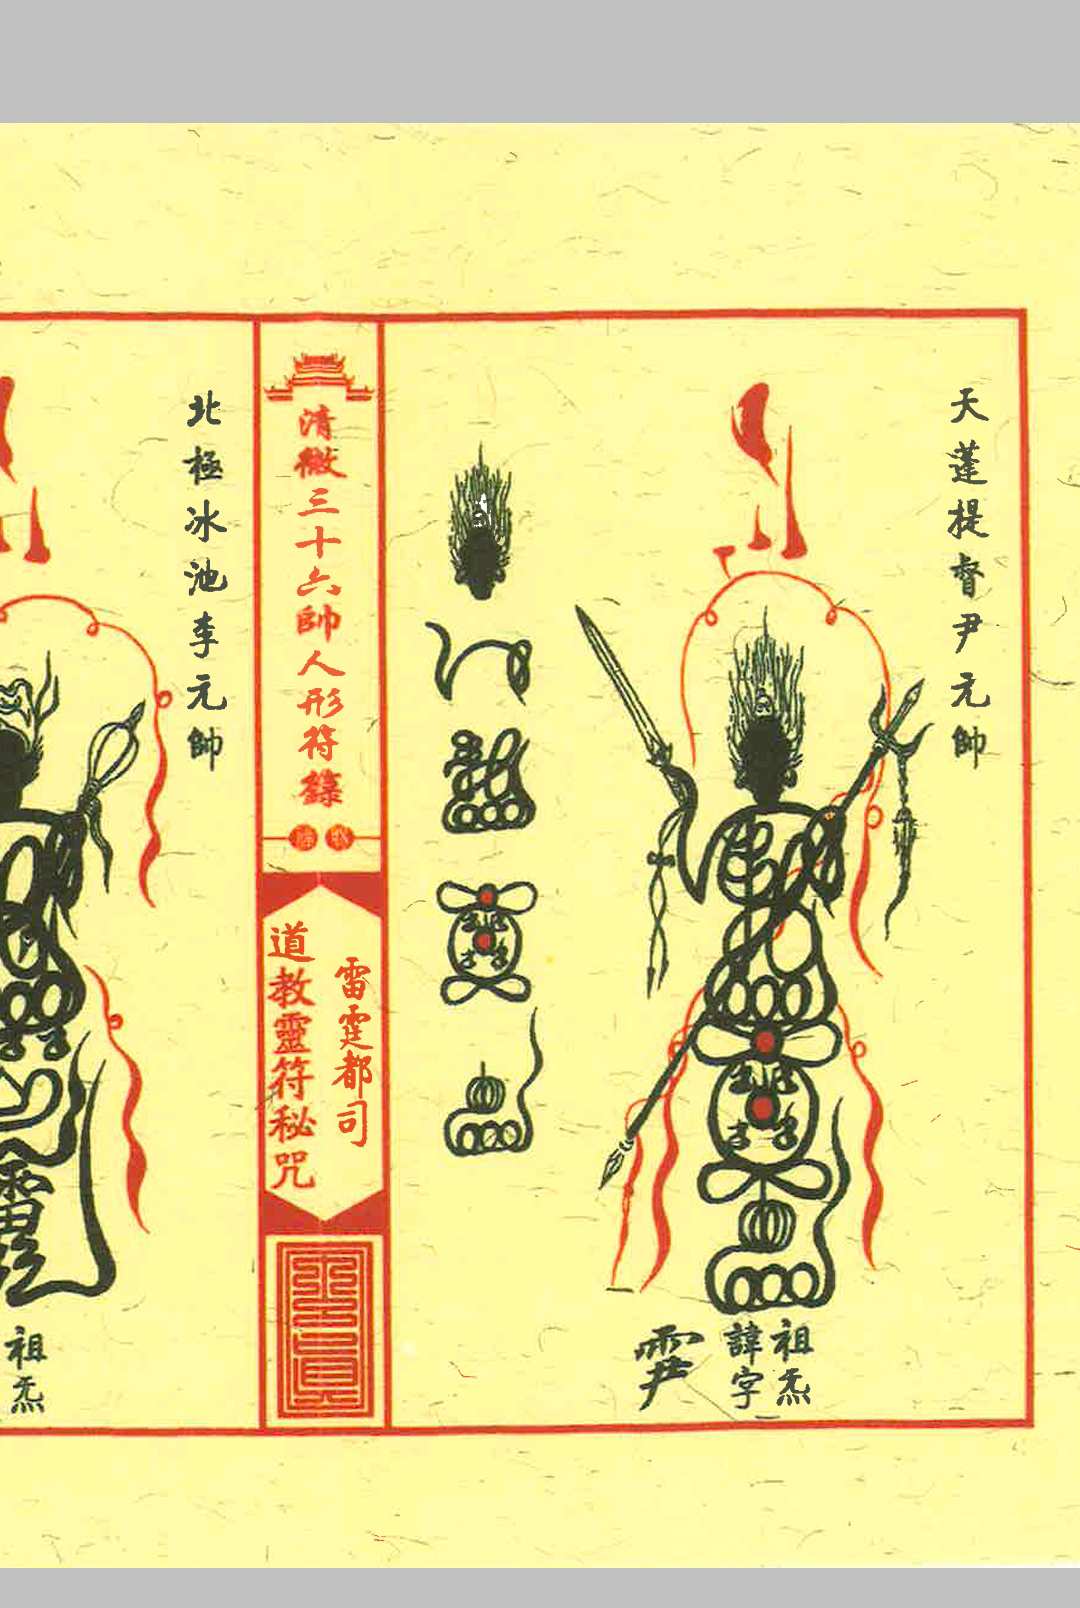 天蓬提督尹元帥
祖炁
諱字
清微三十六帥人形符籙
雷霆都司
道教靈符秘咒
北極冰池李元帥
祖炁